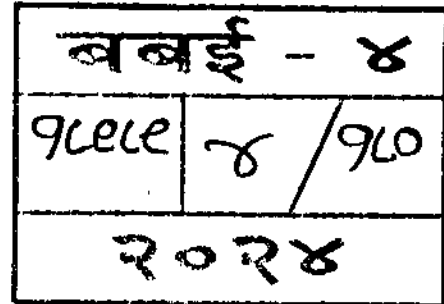 बबई - ४
१८९८९ ४ / १८०
२०२४